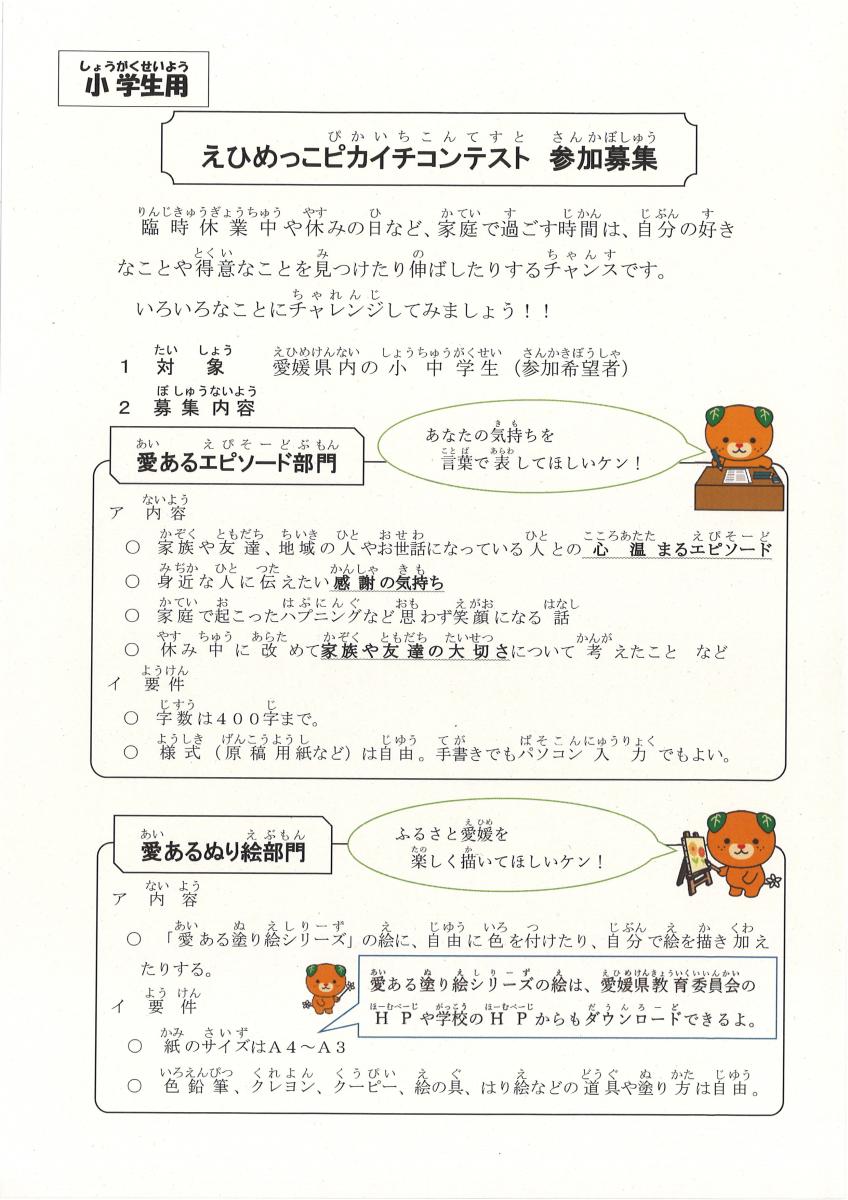 しょうがくせいよう
小学生用
ぴかいちこんてすと さんかぼしゅう
えひめっこピカイチコンテスト 参加募集
りんじきゅうぎょうちゅう やす ひ かてい す じかん じぶん す
臨時休業中や休みの日など、家庭で過ごす時間は、自分の好き
とくい み の ちゃんす
なことや得意なことを見つけたり伸ばしたりするチャンスです。
ちゃれんじ
いろいろなことにチャレンジしてみましょう！！
たい しょう えひめけんない しょうちゅうがくせい さんかきぼうしゃ
１ 対 象 愛媛県内の小中学生（参加希望者）
ぼしゅうないよう
２ 募集内容
き も
あなたの気持ちを
ことば あらわ
言葉で表してほしいケン！
あい えぴそーどぶもん
愛あるエピソード部門
ないよう
ア 内容
かぞく ともだち ちいき ひと おせわ ひと こころあたた えぴそーど
○ 家族や友達、地域の人やお世話になっている人との心温まるエピソード
みぢか ひと つた かんしゃ きも
○ 身近な人に伝えたい感謝の気持ち
かてい お はぷにんぐ おも えがお はなし
○ 家庭で起こったハプニングなど思わず笑顔になる話
やす ちゅう あらた かぞく ともだち たいせつ かんが
○ 休み中に改めて家族や友達の大切さについて考えたこと など
ようけん
イ 要件
じすう じ
○ 字数は４００字まで。
ようしき げんこうようし じゆう てが ぱそこんにゅうりょく
○ 様式（原稿用紙など）は自由。手書きでもパソコン入力でもよい。
えひめ
ふるさと愛媛を
たの か
楽しく描いてほしいケン！
あい えぶもん
愛あるぬり絵部門
ないよう
ア 内容
あい ぬ えしりーず え じゆう いろ つ じぶん え か くわ
○ 「愛ある塗り絵シリーズ」の絵に、自由に色を付けたり、自分で絵を描き加え
たりする。
あい ぬ えしりーず え えひめけんきょういくいいんかい
愛ある塗り絵シリーズの絵は、愛媛県教育委員会の
ほーむぺーじ がっこう ほーむぺーじ だうんろーど
ＨＰや学校のＨＰからもダウンロードできるよ。
ようけん
イ 要件
かみ さいず
○ 紙のサイズはＡ４～Ａ３
いろえんぴつ くれよん くうぴい え ぐ え どうぐ ぬ かた じゆう
○ 色鉛筆、クレヨン、クーピー、絵の具、はり絵などの道具や塗り方は自由。